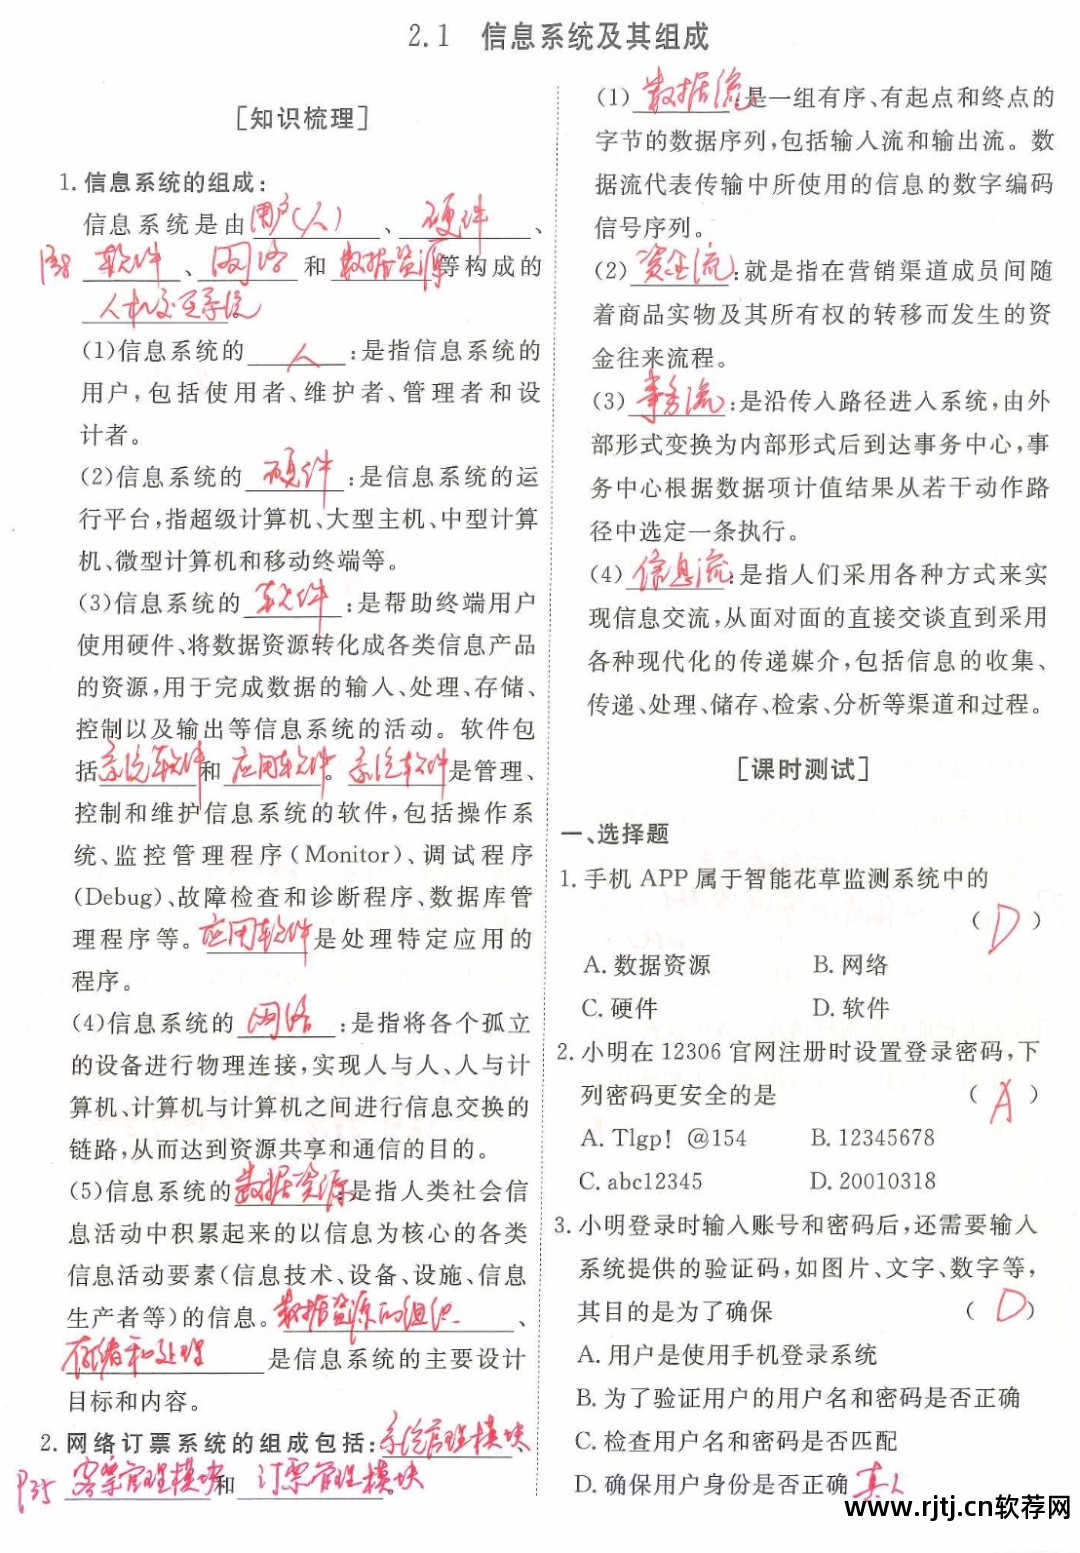 2.1 信息系统及其组成
[知识梳理]
1. 信息系统的组成:
信息系统是由用户(人)、硬件、
P38 软件、网络和数据资源等构成的
人机交互系统
(1)信息系统的人:是指信息系统的
用户,包括使用者、维护者、管理者和设
计者。
(2)信息系统的硬件:是信息系统的运
行平台,指超级计算机、大型主机、中型计算
机、微型计算机和移动终端等。
(3)信息系统的软件:是帮助终端用户
使用硬件、将数据资源转化成各类信息产品
的资源,用于完成数据的输入、处理、存储、
控制以及输出等信息系统的活动。软件包
括系统软件和应用软件。系统软件是管理、
控制和维护信息系统的软件,包括操作系
统、监控管理程序(Monitor)、调试程序
(Debug)、故障检查和诊断程序、数据库管
理程序等。应用软件是处理特定应用的
程序。
(4)信息系统的网络:是指将各个孤立
的设备进行物理连接,实现人与人、人与计
算机、计算机与计算机之间进行信息交换的
链路,从而达到资源共享和通信的目的。
(5)信息系统的数据资源:是指人类社会信
息活动中积累起来的以信息为核心的各类
信息活动要素(信息技术、设备、设施、信息
生产者等)的信息。数据资源的组织、
存储和处理是信息系统的主要设计
目标和内容。
2. 网络订票系统的组成包括:系统管理模块、
P35 客票管理模块和订票管理模块。
(1)数据流:是一组有序、有起点和终点的
字节的数据序列,包括输入流和输出流。数
据流代表传输中所使用的信息的数字编码
信号序列。
(2)资金流:就是指在营销渠道成员间随
着商品实物及其所有权的转移而发生的资
金往来流程。
(3)事务流:是沿传入路径进入系统,由外
部形式变换为内部形式后到达事务中心,事
务中心根据数据项计值结果从若干动作路
径中选定一条执行。
(4)信息流:是指人们采用各种方式来实
现信息交流,从面对面的直接交谈直到采用
各种现代化的传递媒介,包括信息的收集、
传递、处理、储存、检索、分析等渠道和过程。
[课时测试]
一、选择题
1. 手机 APP 属于智能花草监测系统中的
( D )
A. 数据资源 B. 网络
C. 硬件 D. 软件
2. 小明在 12306 官网注册时设置登录密码,下
列密码更安全的是 ( A )
A. Tlgp! @154 B. 12345678
C. abc12345 D. 20010318
3. 小明登录时输入账号和密码后,还需要输入
系统提供的验证码,如图片、文字、数字等,
其目的是为了确保 ( D )
A. 用户是使用手机登录系统
B. 为了验证用户的用户名和密码是否正确
C. 检查用户名和密码是否匹配
D. 确保用户身份是否正确 真人
www.rjtj.cn软荐网